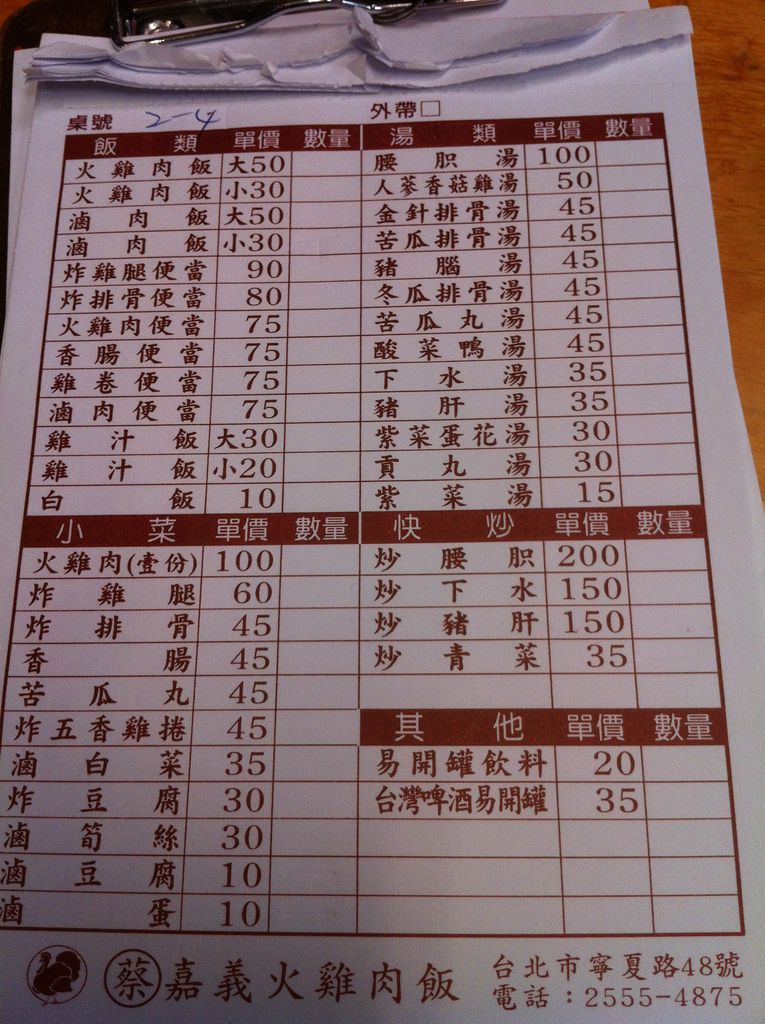 桌號 2-4 外帶□
飯類 單價 數量 湯類 單價 數量
火雞肉飯 大50 腰胆湯 100
火雞肉飯 小30 人蔘香菇雞湯 50
滷肉飯 大50 金針排骨湯 45
滷肉飯 小30 苦瓜排骨湯 45
炸雞腿便當 90 豬腦湯 45
炸排骨便當 80 冬瓜排骨湯 45
火雞肉便當 75 苦瓜丸湯 45
香腸便當 75 酸菜鴨湯 45
雞卷便當 75 下水湯 35
滷肉便當 75 豬肝湯 35
雞汁飯 大30 紫菜蛋花湯 30
雞汁飯 小20 貢丸湯 30
白飯 10 紫菜湯 15
小菜 單價 數量 快炒 單價 數量
火雞肉(壹份) 100 炒腰胆 200
炸雞腿 60 炒下水 150
炸排骨 45 炒豬肝 150
香腸 45 炒青菜 35
苦瓜丸 45
炸五香雞捲 45 其他 單價 數量
滷白菜 35 易開罐飲料 20
炸豆腐 30 台灣啤酒易開罐 35
滷筍絲 30
滷豆腐 10
滷蛋 10
蔡 嘉義火雞肉飯 台北市寧夏路48號
電話：2555-4875